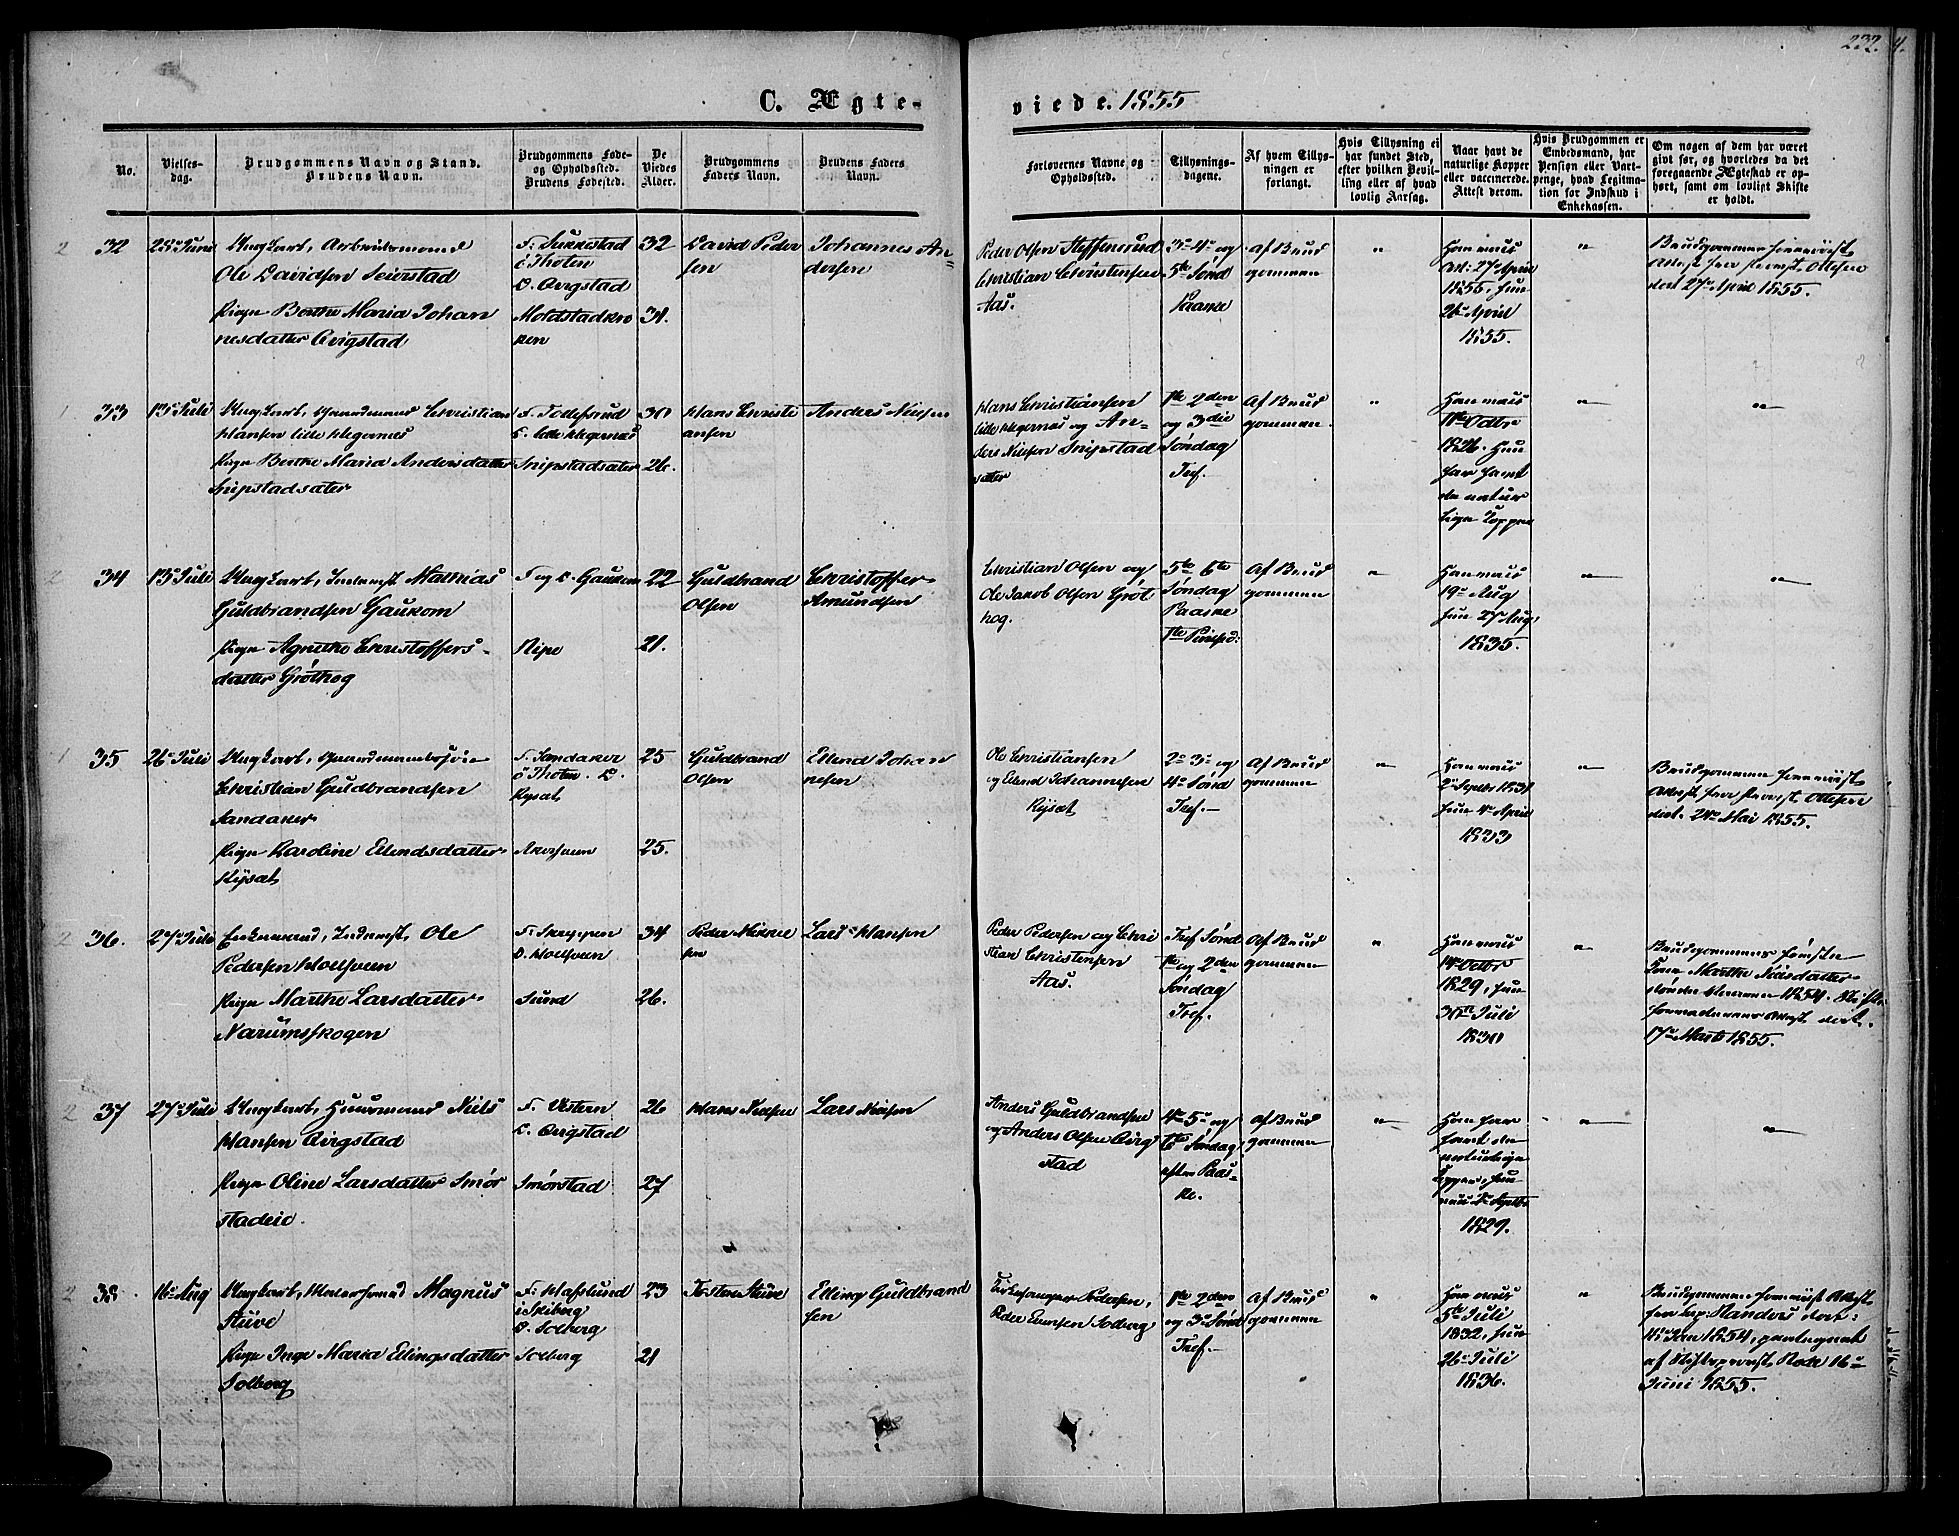 232.
C. Ægte-
viede. 1855
No.
Vielses-
dag.
Brudgommens Navn og Stand.
Brudens Navn.
Brudgommens Føde-
og Opholdssted.
Brudens Fødested.
De
Viedes
Alder.
Brudgommens
Faders Navn.
Brudens Faders
Navn.
Forlovernes Navne og
Opholdssted.
Tillysnings-
dagene.
Af hvem Tillys-
ningen er
forlangt.
Hvis Tillysning ei
har fundet Sted,
efter hvilken Bevil-
ling eller af hvad
lovlig Aarsag.
Naar havt de
naturlige Kopper
eller vaccinerede.
Attest derom.
Hvis Brudgommen er
Embedsmand, har
Pension eller Vart-
penge, hvad Legitma-
tion for Indskud i
Enkekassen.
Om nogen af dem har været
gift før, og hvorledes da det
foregaaende Ægteskab er op-
hørt, samt om lovligt Skifte
er holdt.
2 32 Juni
Ungkarl, Arbeidsmand
Ole Davidsen Seierstad
Pigen Berthe Maria Johan
nesdatter Qvigstad
i Thoten
32
31.
David Peder
sen
Johannes An-
dersen
Peder Olsen Steffensrud
Christian Christensen
Aas.
3die 4de og
5te Sønd
Paaske
Af Brud
gommen
"
Han vacc
Att: 27de April
1855, hun
26de April
1855.
"
Brudgommen fremviist
Attest fra Provst Ottesen
dat 27de April 1855.
1 33 13de Juli
Ungkarl, Gaardmand Christian
Hansen lille Hegernes
Pigen Berthe Maria Andersdatter
Snipstadsæter
F. Tollefsrud
O. lille Hegernæs
Snipstadsæter
30
26.
Hans Christi
ansen
Anders Nielsen
Hans Christiansen
lille Hegernæs og An-
ders Nielsen Snipstad
sæter
1ste 2den
og 3die
Søndag
Tref.
Af Brud
gommen
"
Han vacc
11te Octbr
1826. Hun
har havt
de natur
lige Kopper
"
"
2 34 13de Juli
Ungkarl, Inderst Mathias
Guldbrandsen Gaukom
Pigen Agnethe Christoffers-
datter Grøthog
F og O. Gaukom
Ripe
22
21.
Guldbrand
Olsen
Christoffer
Amundsen
Christian Olsen og
Ole Jakob Olsen Grøt
hog.
5te 6te
Søndag
Paaske
1ste Pintsed:
Af Brud
gommen
"
Han vacc
19de Aug
hun 27de Aug.
1835.
"
"
1 35 26de Juli
Ungkarl, Gaardmandssøn
Christian Guldbrandsen
Sandaker
Pigen Karoline Erlendsdatter
Rÿsæt
F. Sandaker
i Thoten. O.
Rysæt
25
25.
Guldbrand
Olsen
Erlend Johan
nesen
Ole Christiansen
og Erlend Johannesen
Rÿsæt
2den 3die og
4de Sønd
Tref.
Af Brud
gommen
"
Han vacc
2den Septbr 1831
hun 4de April
1833
"
Brudgommen fremviist
Attest fra Provst Ottesen
dat. 24de Mai 1855.
2 36. 27de Juli
Enkemand, Inderst, Ole
Pedersen
Pigen Marthe Larsdatter
Narumskogen
F. Skreppen
Sund
34
26.
Peder Mikkel
sen
Lars Hansen
Peder Pedersen og Chri
stian Christensen
Aas.
Tref Sønd
1ste og 2den
Søndag
Tref.
Af Brud
gommen
"
Han vacc
14de Octbr
1829, hun
30te Juli
1830
"
Brudgommens første
Kone Marthe Nilsdatter
1854. Skifte
forvalterens Attest dat.
17de Marts 1855.
2 37 27de Juli
Ungkarl, Huusmand Niels
Hansen Qvigstad
Pigen Oline Larsdatter Smør
stadeie.
F. Vestern
O. Qvigstad
Smørstad
26
27
Hans Nielsen
Lars Nielsen
Anders Guldbrandsen
og Anders Olsen Qvig
stad
4de 5te og
6te Søndag
efter Paas-
ke.
Af Brud
gommen
"
Han har
havt de
naturlige
Kopper, hun
vacc Septbr
1829.
"
"
2 38 16de Aug
Ungkarl, Magnus
Stüve
Pigen Inge Maria Ellingsdatter
Solberg
F. Hafslund
i Skiberg
O. Solberg
Solberg
23
21
Torsten Stüve
Elling Guldbrand
sen
Kirkesanger Pedersen,
Peder Evensen Solberg
1ste 2den
og 3die Sønd
Tref.
Af Brud
gommen
"
Han vacc
5te Juli
1832, hun
26de Juli
1836.
"
Brudgommen fremviist Attest
1854, paategnet
af Stiftsprovst Rode 16de
Juni 1855.